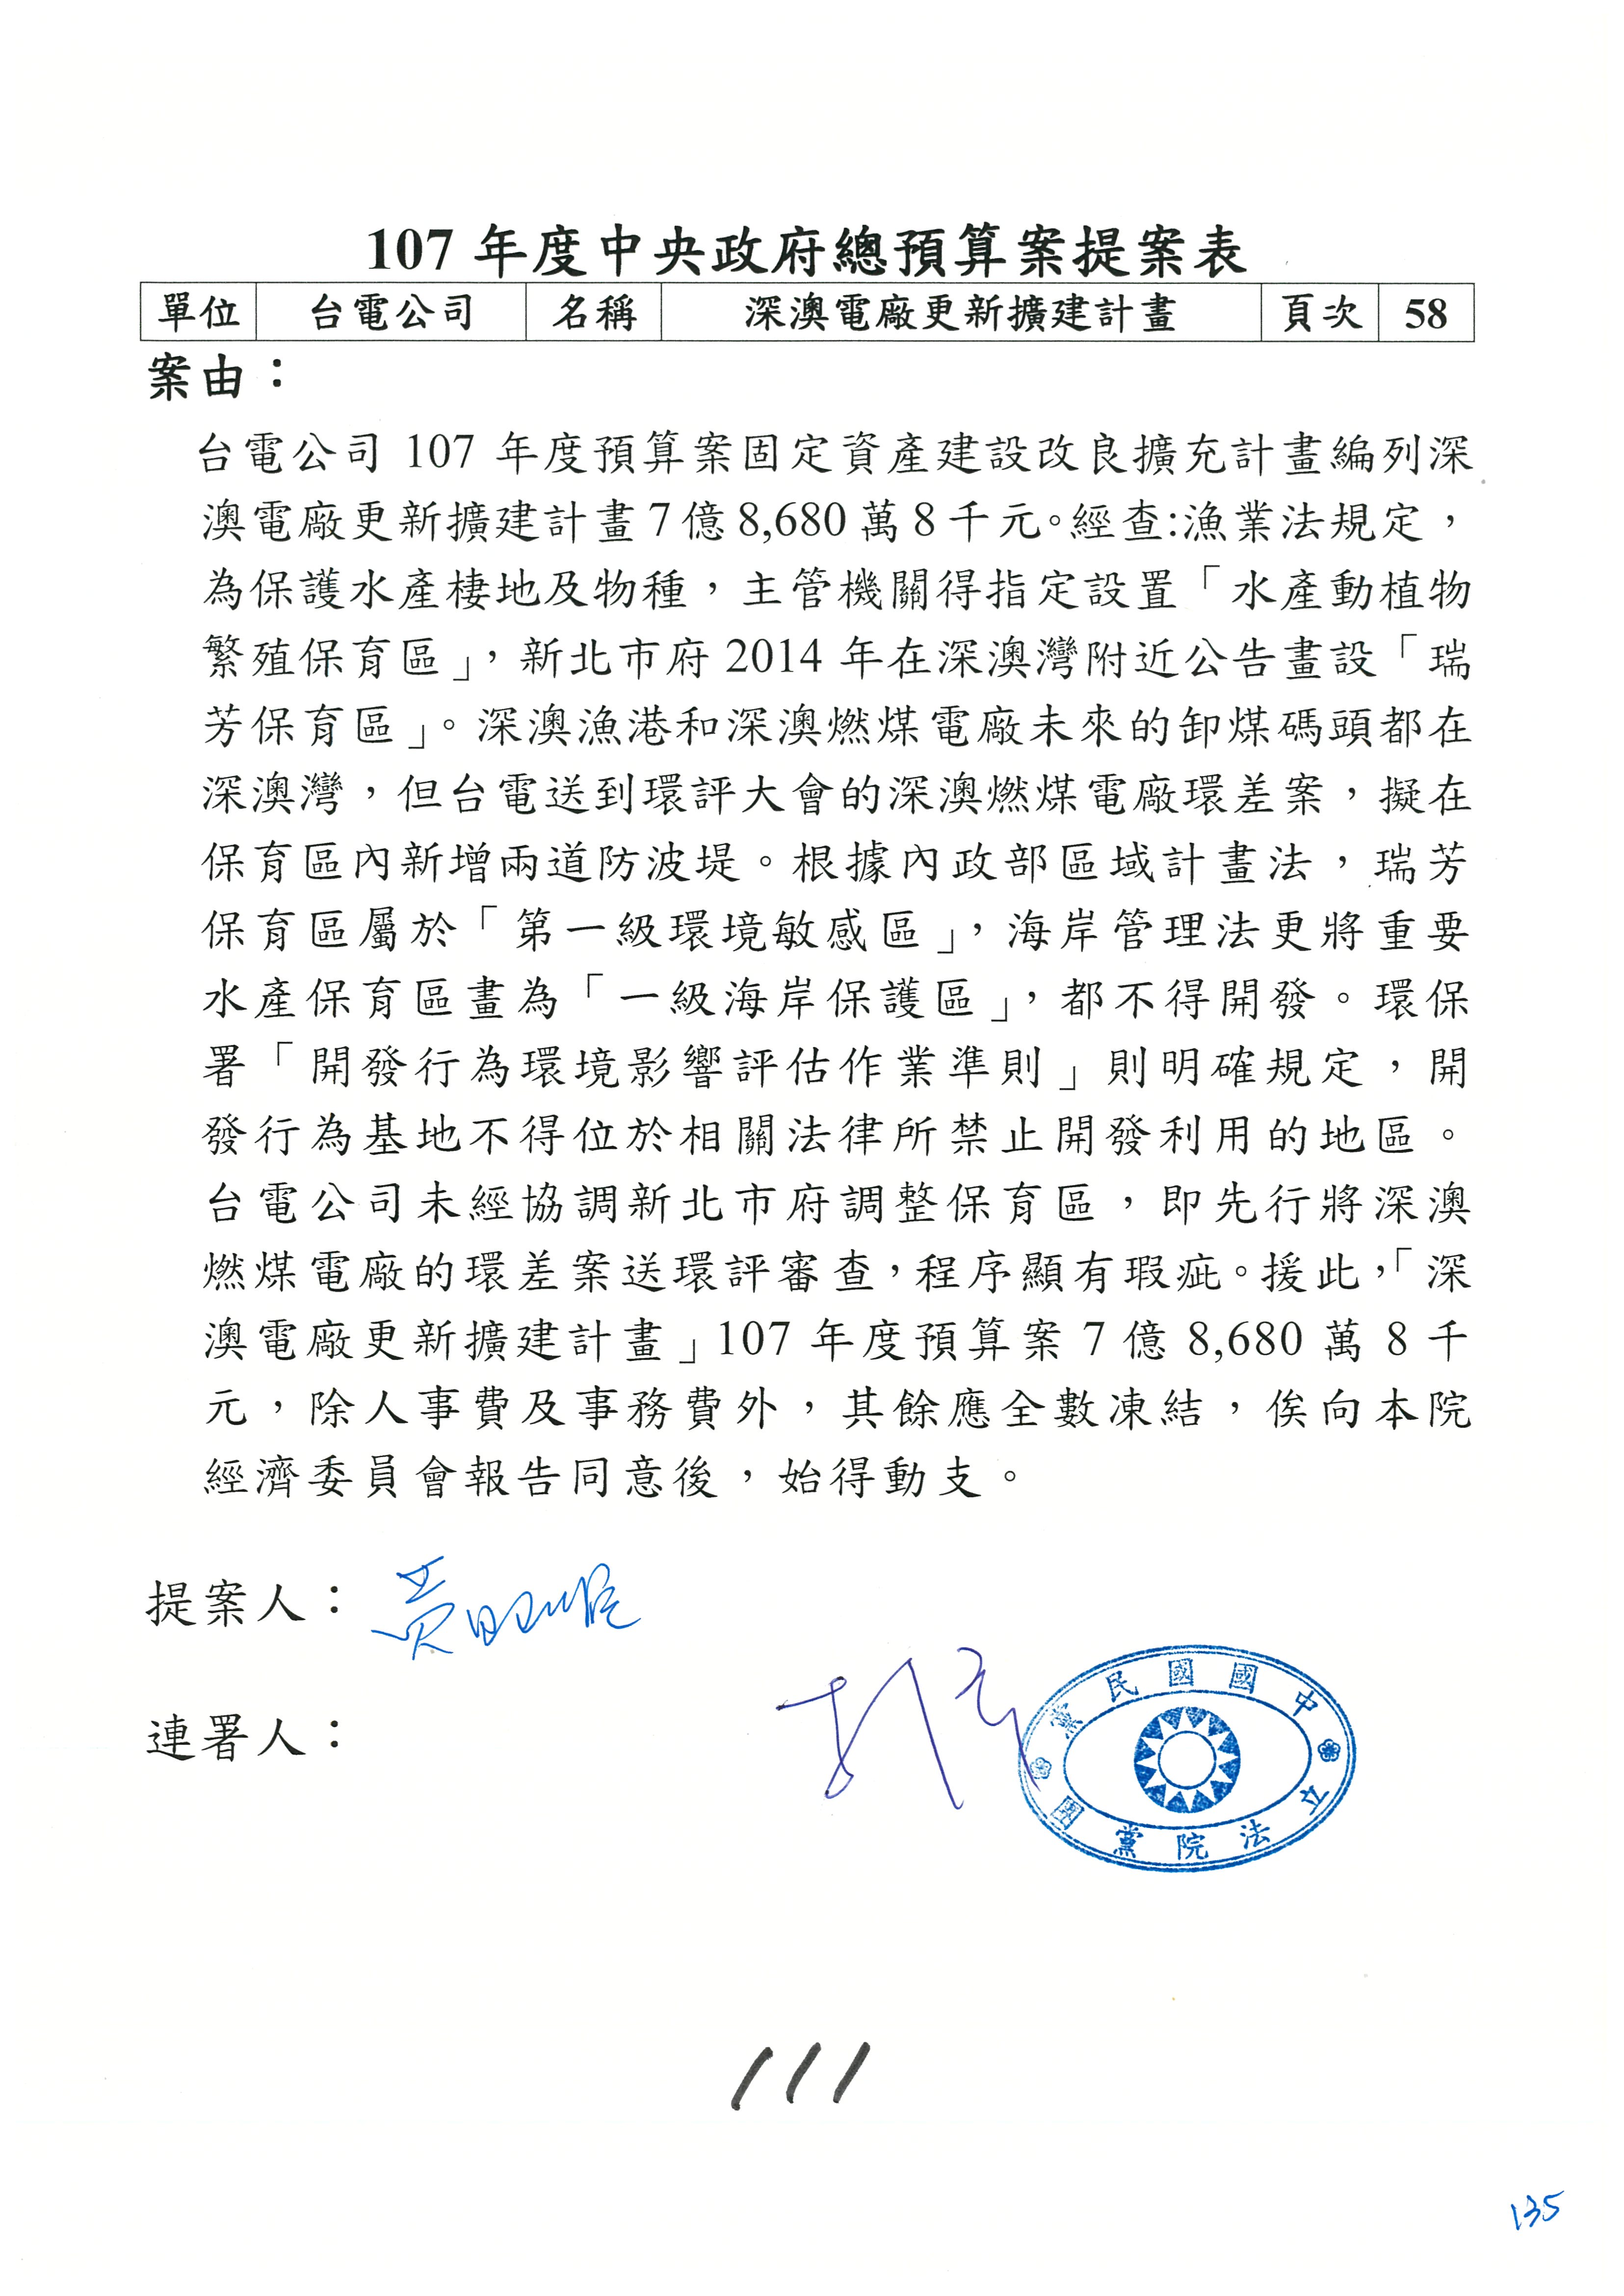 107 年度中央政府總預算案提案表
單位 台電公司 名稱 深澳電廠更新擴建計畫 頁次 58
案由：
台電公司 107 年度預算案固定資產建設改良擴充計畫編列深
澳電廠更新擴建計畫 7 億 8,680 萬 8 千元。經查:漁業法規定，
為保護水產棲地及物種，主管機關得指定設置「水產動植物
繁殖保育區」，新北市府 2014 年在深澳灣附近公告畫設「瑞
芳保育區」。深澳漁港和深澳燃煤電廠未來的卸煤碼頭都在
深澳灣，但台電送到環評大會的深澳燃煤電廠環差案，擬在
保育區內新增兩道防波堤。根據內政部區域計畫法，瑞芳
保育區屬於「第一級環境敏感區」，海岸管理法更將重要
水產保育區畫為「一級海岸保護區」，都不得開發。環保
署「開發行為環境影響評估作業準則」則明確規定，開
發行為基地不得位於相關法律所禁止開發利用的地區。
台電公司未經協調新北市府調整保育區，即先行將深澳
燃煤電廠的環差案送環評審查，程序顯有瑕疵。援此，「深
澳電廠更新擴建計畫」107 年度預算案 7 億 8,680 萬 8 千
元，除人事費及事務費外，其餘應全數凍結，俟向本院
經濟委員會報告同意後，始得動支。
提案人：
連署人：
中國國民黨
立法院黨團
111
135